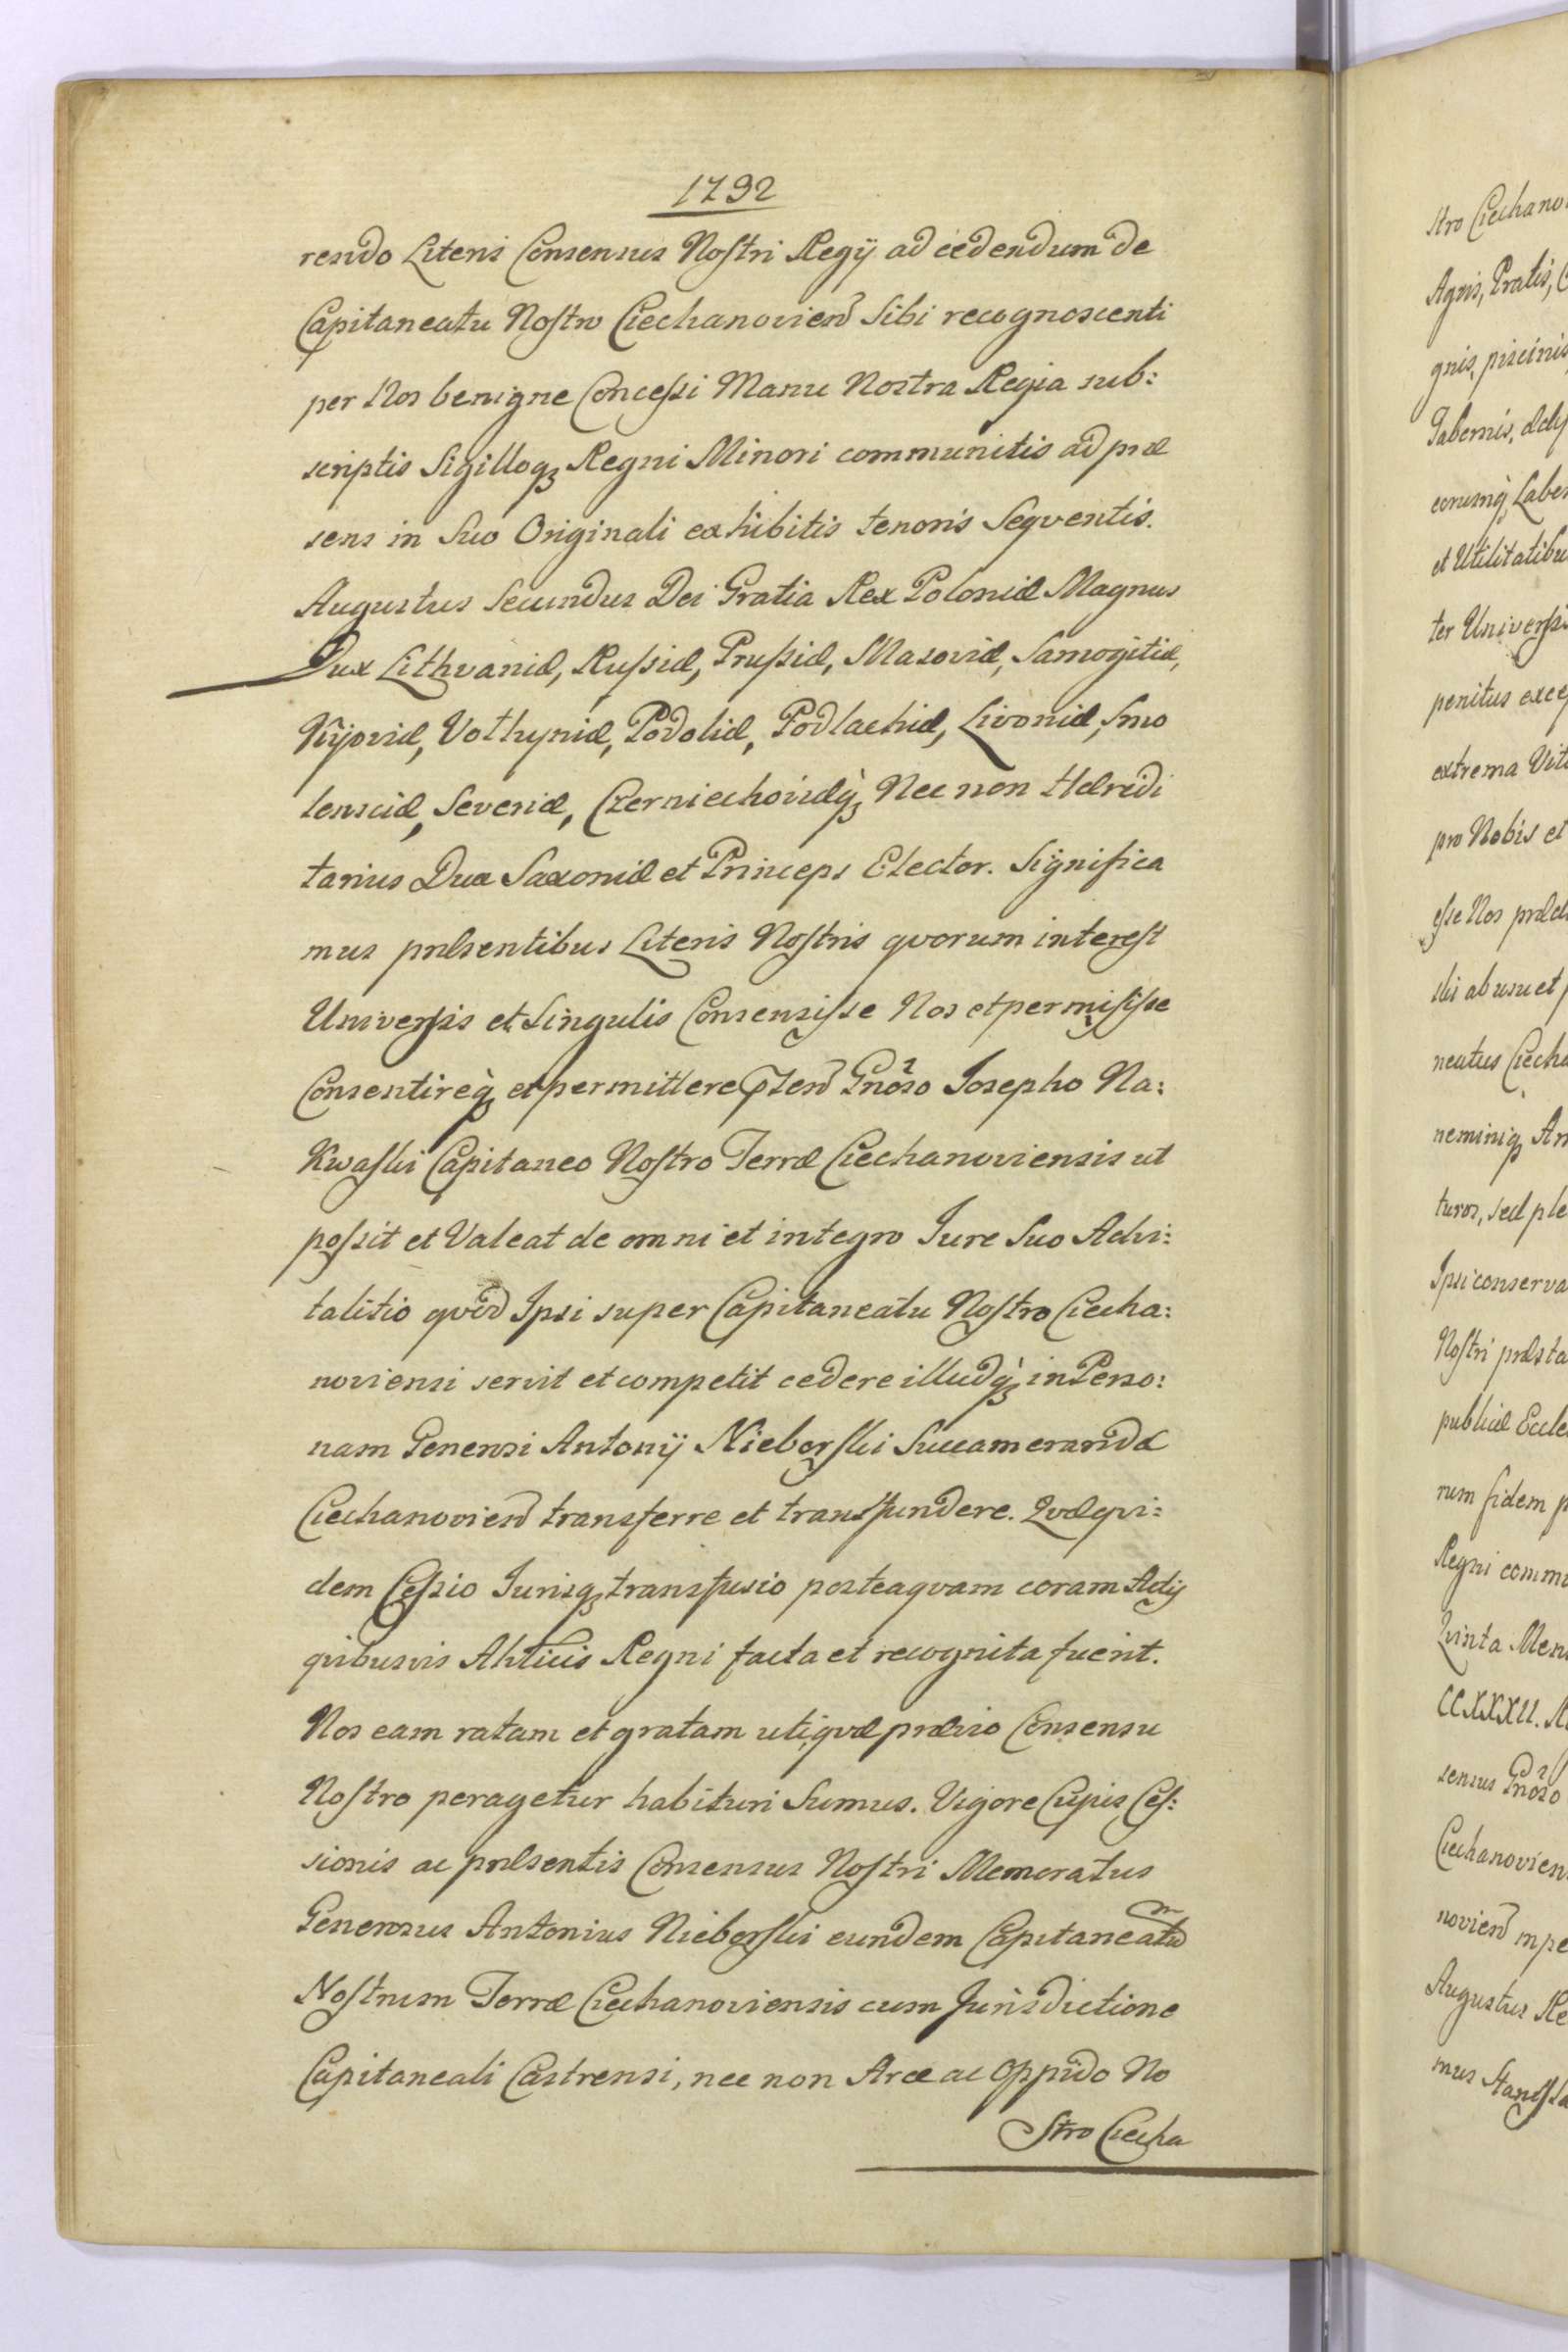 1792
rendo Literis Consensus Nostri Regÿ ad cedendum de
Capitaneatu Nostro Ciechanovien Sibi recognoscenti
per Nos benigne Concessi Manu Nostra Regia sub:
scriptis Sigilloq Regni Minori communitis ad præ
sens in Suo Originali exhibitis tenoris Seqventis.
Augustus Secundus Dei Gratia Rex Poloniæ Magnus
Dux Lithvaniæ, Russiæ, Prussiæ, Masoviæ, Samogitiæ,
Kijoviæ, Volhyniæ, Podoliæ, Podlachiæ, Livoniæ, Smo
lensciæ, Severiæ, Czerniechoviæq Nec non Hæredi
tarius Dux Saxoniæ et Princeps Elector. Significa
mus præsentibus Literis Nostris qvorum interest
Universis et Singulis Consensisse Nos et permisisse
Consentireq et permittere Gnoso Josepho Na:
Kwaski Capitaneo Nostro Terræ Ciechanoviensis ut
possit et Valeat de omni et integro Jure Suo Advi:
talitio qvod Ipsi super Capitaneatu Nostro Ciecha:
noviensi servit et competit cedere illudq in Perso:
nam Generosi Antonÿ Nieborski Succameraridæ
Ciechanovien transferre et transfundere. Qvæqvi:
dem Cessio Jurisq transfusio posteaqvam coram Actis
qvibusvis Ahticis Regni facta et recognita fuerit.
Nos eam ratam et gratam utiqvæ prævio Consensu
Nostro peragetur habituri Sumus. Vigore Cujus Ces:
sionis ac præsentis Consensus Nostri Memoratus
Generosus Antonius Nieborski eundem Capitaneatum
Nostrum Terræ Ciechanoviensis cum Jurisdictione
Capitaneali Castrensi, nec non Arce ac Oppido No
Stro Ciecha
stro Ciechano
Agris, Pratis, C
gnis, piscinis
Tabernis,
eorumq Labe
et Utilitatibu
ter Universi
penitus exce
extrema Vit
pro Nobis et
esse Nos præ
ab usu et
neatus Ciech
neminiq An
turos, sed ple
Ipsi conserva
Nostri præsta
publicæ Eccle
rum fidem p
Regni comm
Qvinta Mens
CCXXXII. A
sensus Gnoso
Ciechanovien
novien
Augustus Re
mus Stanisla